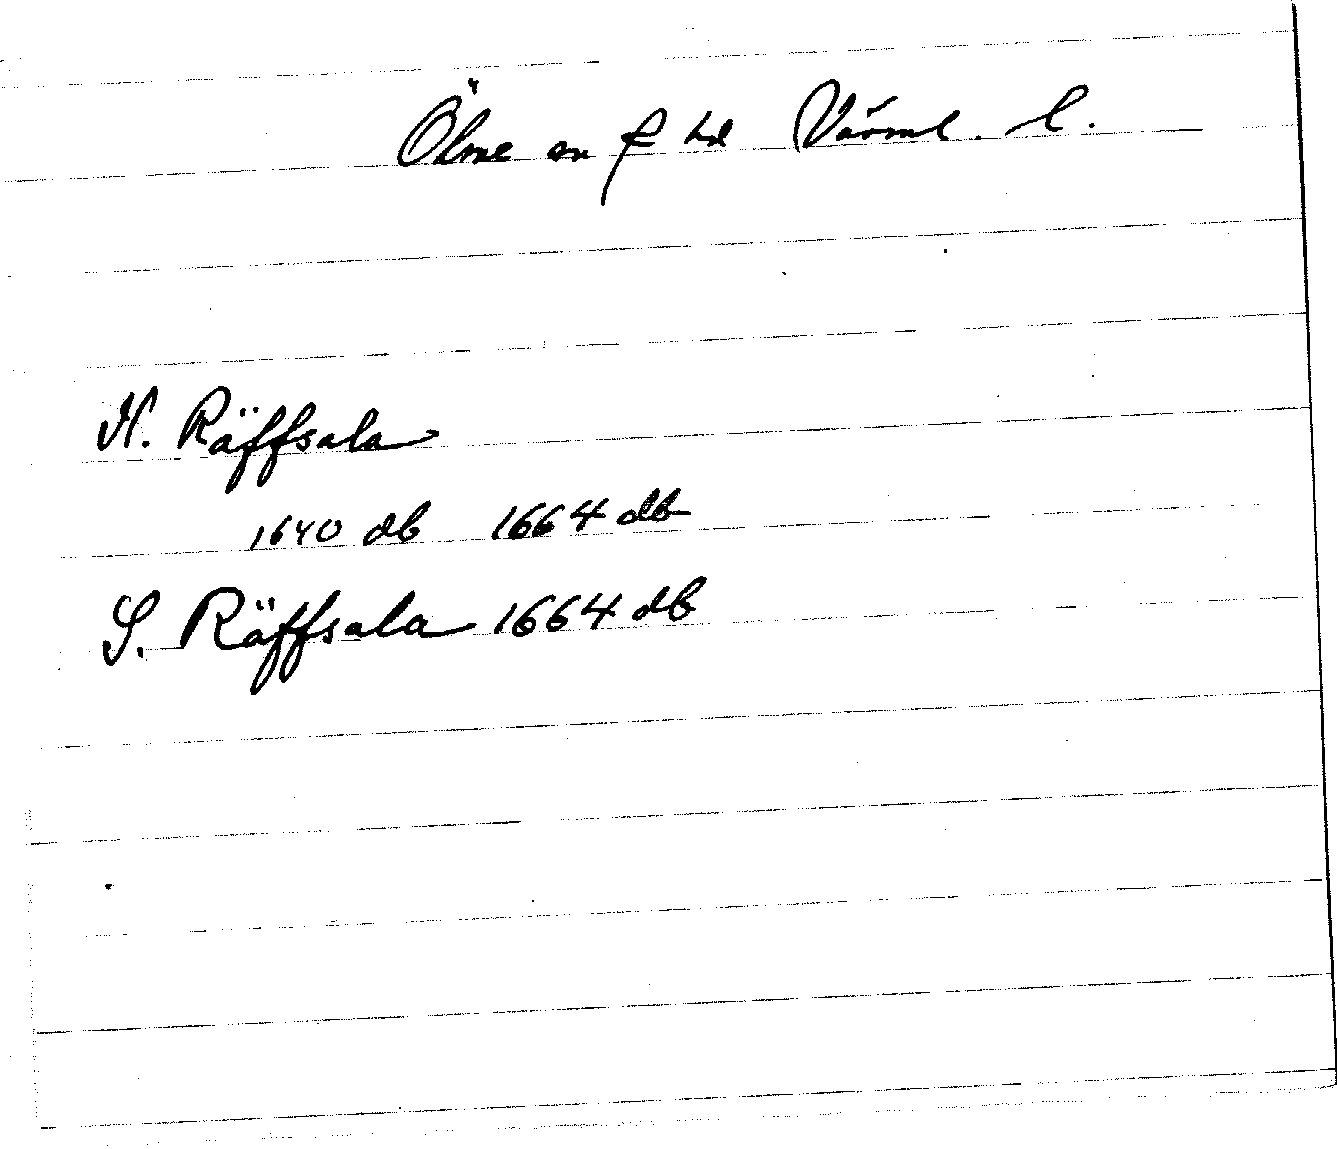 Ölme sn f hd Värml. l.
N. Räffsala
1640 db 1664 db
S. Räffsala 1664 db